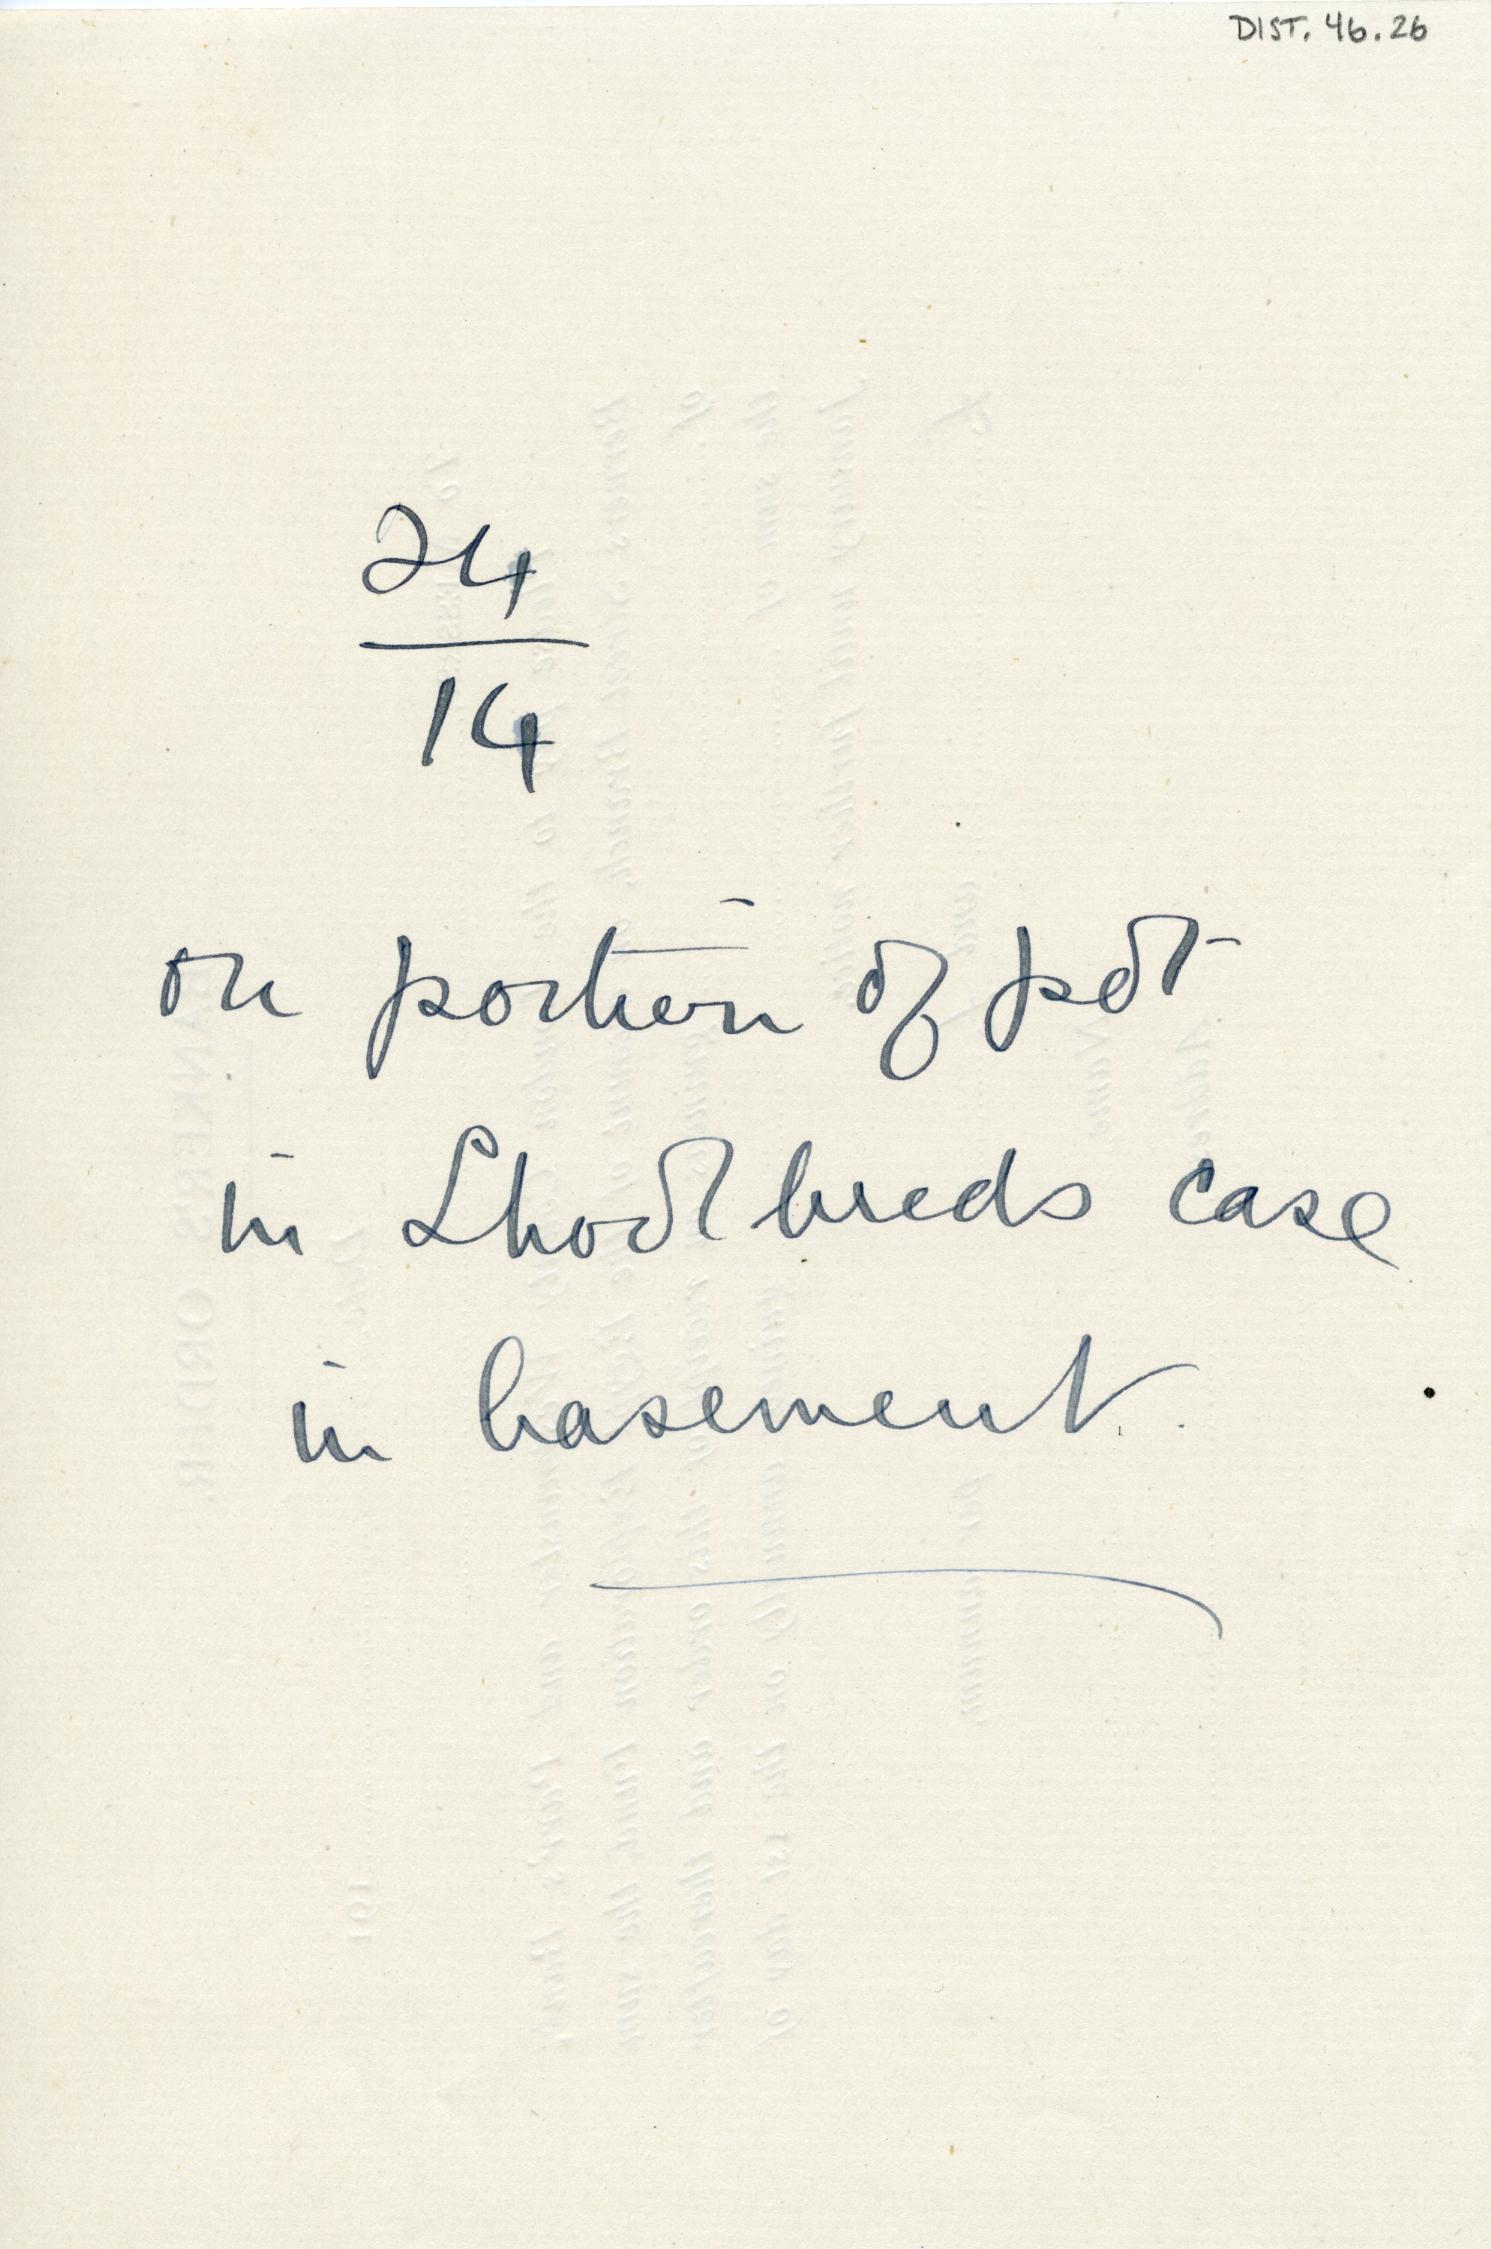 DIST. 46.26
24
14
on portion of pot
in Shoolbreds case
in basement.